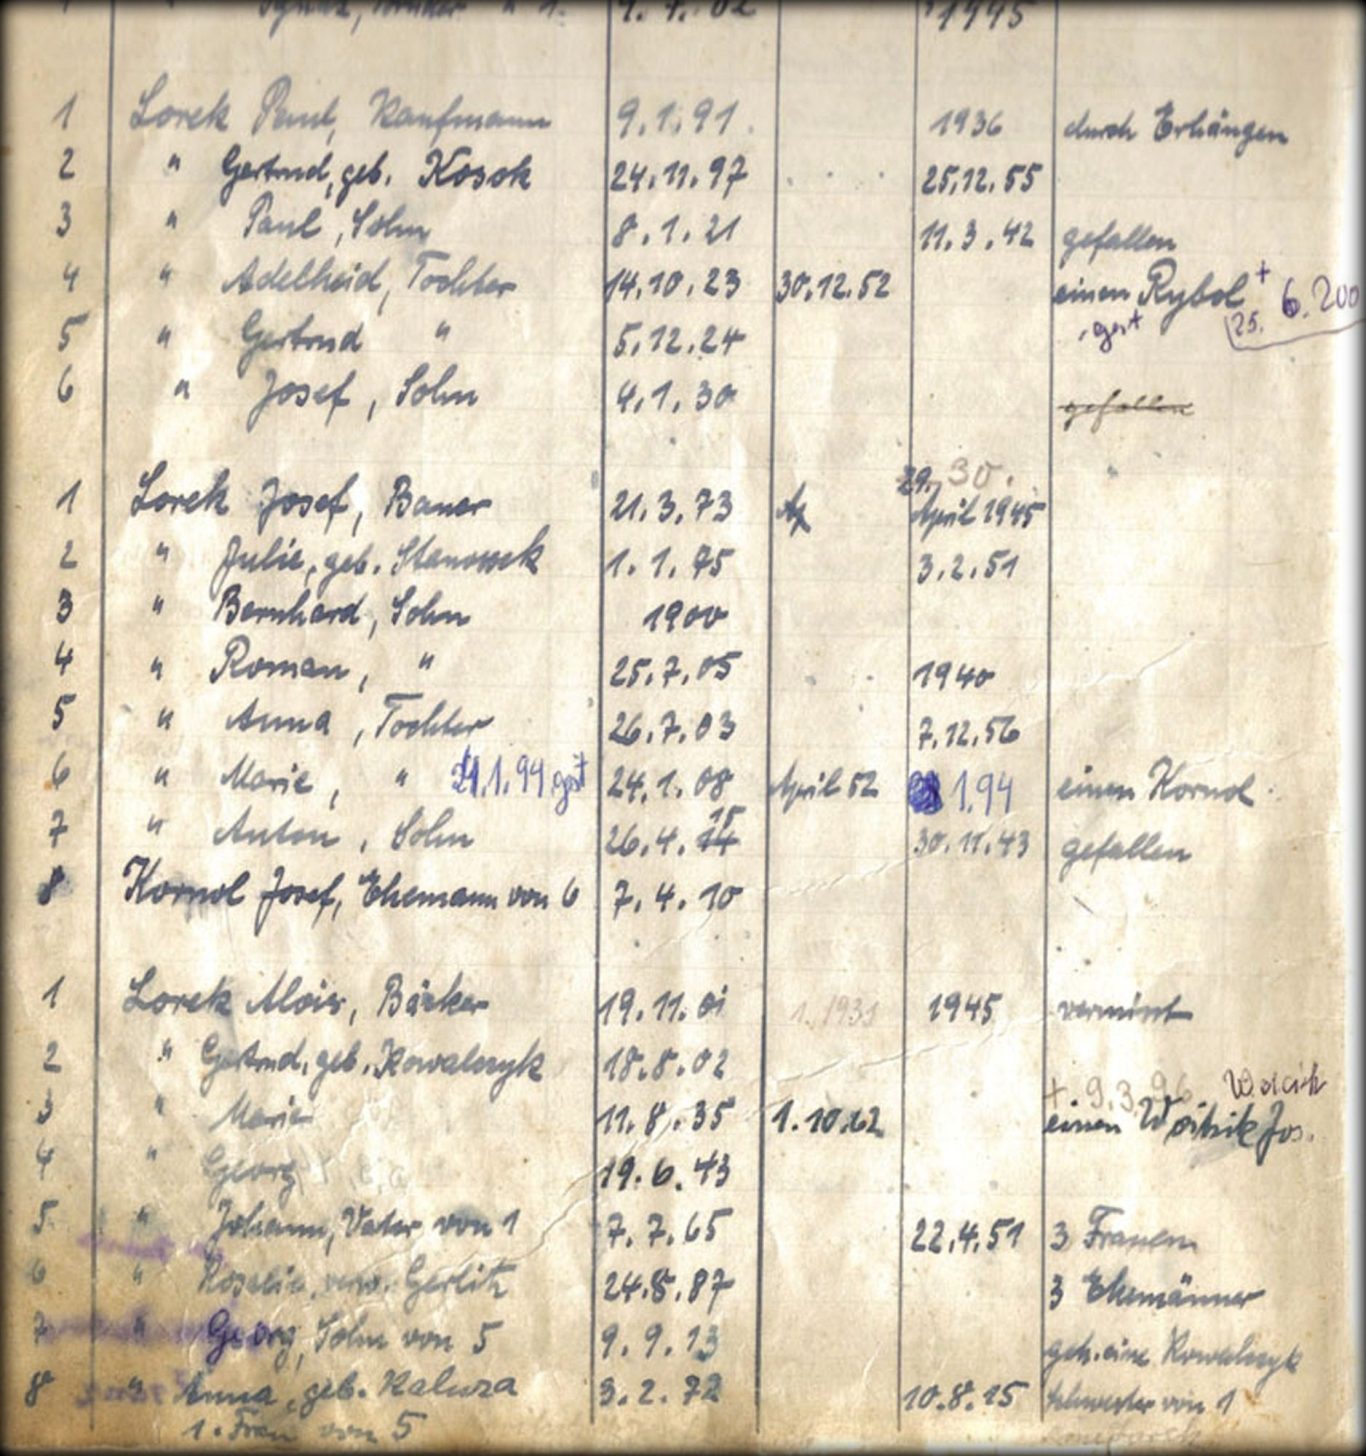 9. 7. 02 1945
1 Lorek Paul, Kaufmann 9.1.91. 1936 durch Erhängen
2 " Gertrud, geb. Kosok 24.11.97 25.12.55
3 " Paul, Sohn 8.1.21 11.3.42 gefallen
4 " Adelheid, Tochter 14.10.23 30.12.52 einen Rybol + 25. 6.200
5 " Gertrud " 5.12.24 gest
6 " Josef, Sohn 4.1.30 gefallen
29. 30.
1 Lorek Josef, Bauer 21.3.73 Ap April 1945
2 " Julie, geb. Stanossek 1.1.75 3.2.51
3 " Bernhard, Sohn 1900
4 " Roman, " 25.7.05 1940
5 " Anna, Tochter 26.7.03 7.12.56
6 " Marie, " 21.1.94 gest 24.1.08 April 52 1.94 einen Kornol
15
7 " Anton, Sohn 26.4.14 30.11.43 gefallen
8 Kornol Josef, Ehemann von 6 7.4.10
1 Lorek Alois, Bäcker 19.11.01 1.1931 1945 vermisst
2 " Gertrud, geb. Kowalczyk 18.8.02
+. 9.3.96
3 " Marie 11.8.35 1.10.62 einen Woitzik Jos.
4 " Georg 19.6.43
5 " Johann, Vater von 1 7.7.65 22.4.51 3 Frauen
6 " Rosalie, verw. Gerlitz 24.8.87 3 Ehemänner
7 " Georg, Sohn von 5 9.9.13 geh. eine Kowalczyk
8 " Anna, geb. Kaluza 3.2.72 10.8.15 Schwester von 1
1. Frau von 5